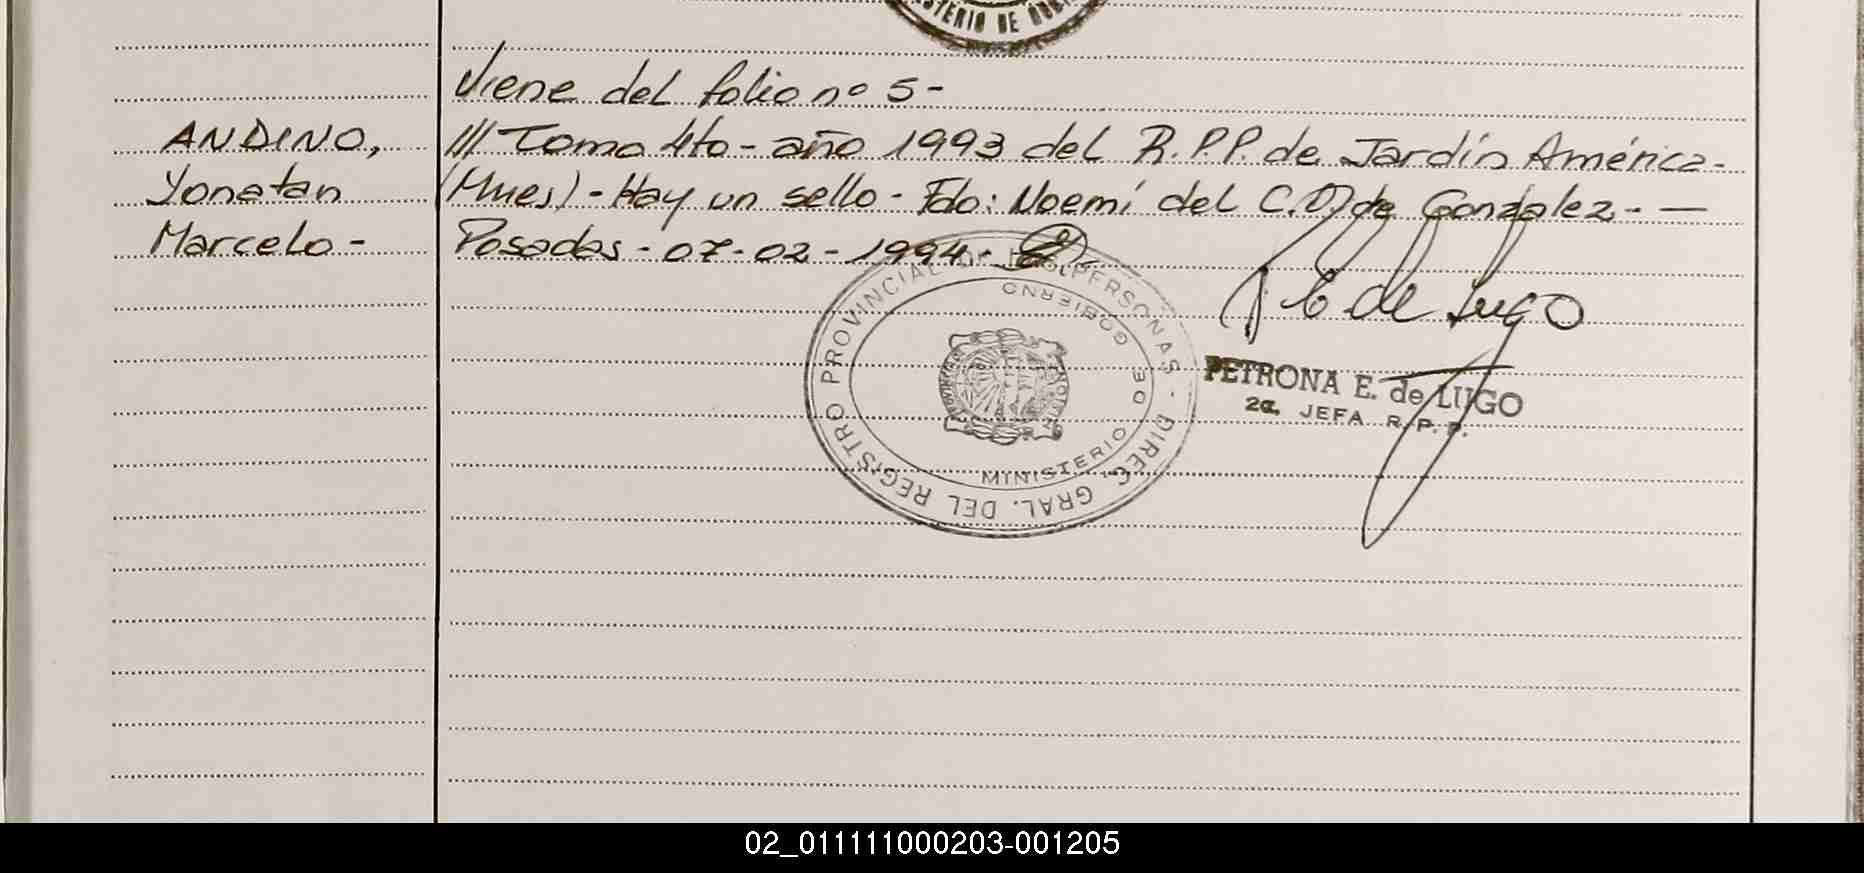 STERIO DE
Viene del folio nº 5-
ANDINO,
Yonatan
Marcelo-
/// Tomo 4to- año 1993 del R.P.P. de Jardín América-
(Mnes)- Hay un sello- Fdo: Noemí del C.O) de Gonzalez.-—
Posadas- 07-02-1994-
DIREC. GRAL. DEL REGISTRO PROVINCIAL DE LAS PERSONAS -
MINISTERIO DE GOBIERNO
P. E de Lugo
PETRONA E. de LUGO
2a. JEFA R. P. P.
02_011111000203-001205